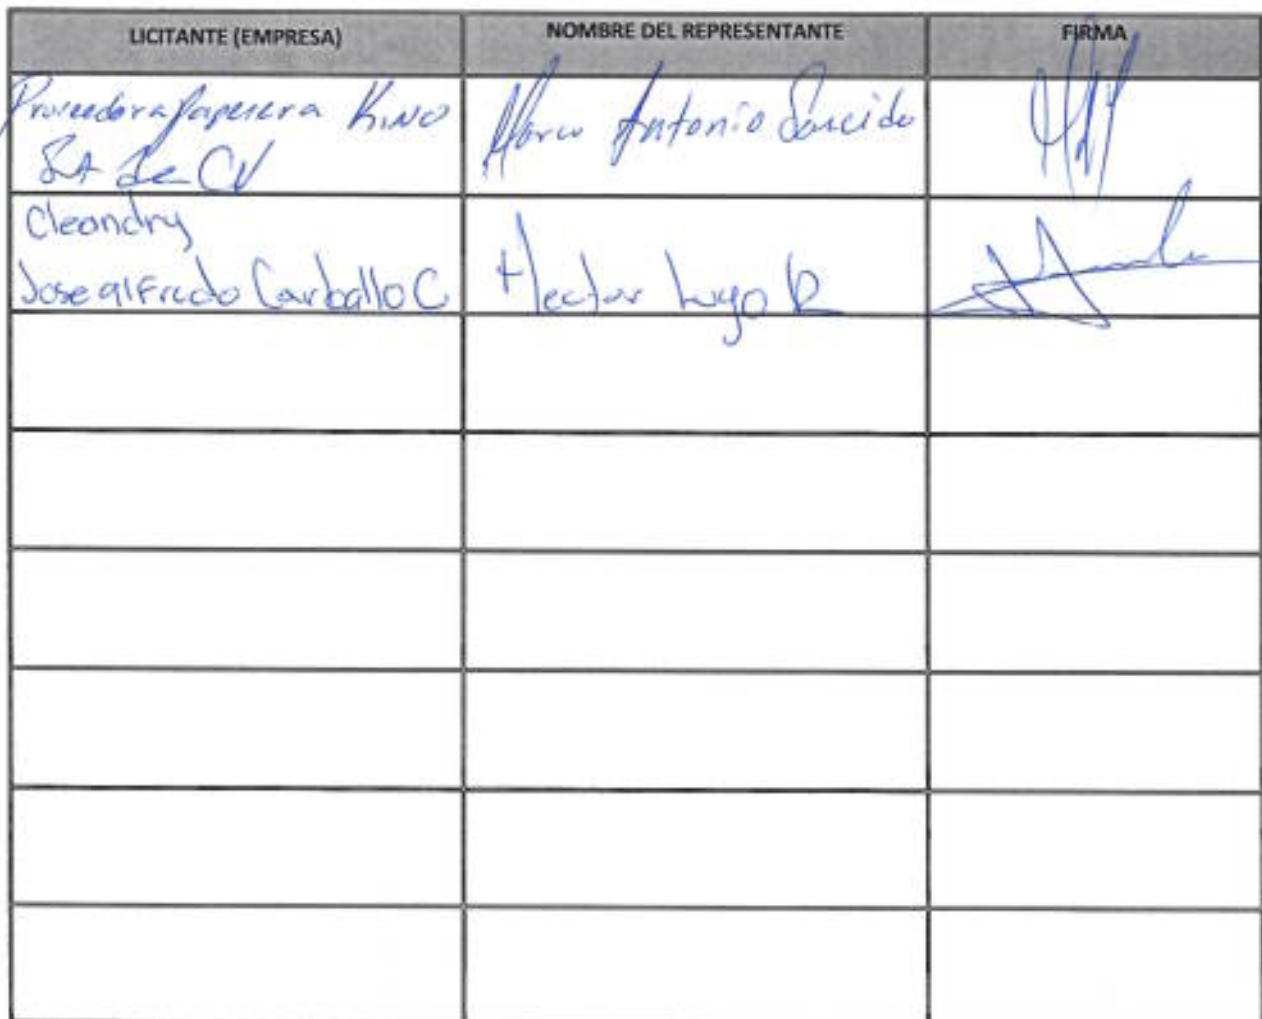 LICITANTE (EMPRESA)
NOMBRE DEL REPRESENTANTE
FIRMA
Proveedora Papelera KINO
SA de CV
Marco Antonio Saucido
Cleandry
Jose alfredo Carballo C
Hector Lugo R